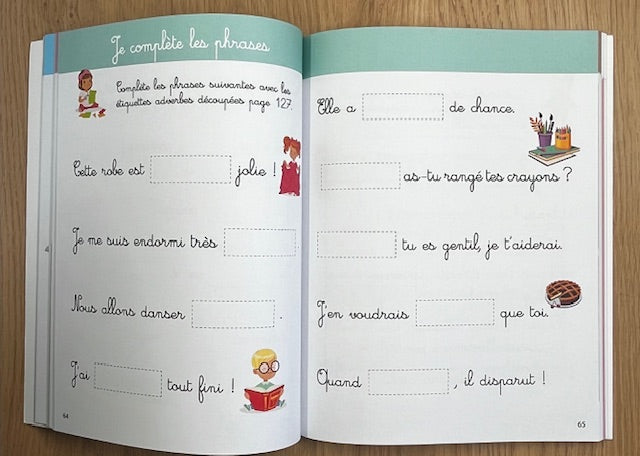 Je complète les phrases
Complète les phrases suivantes avec les
étiquettes adverbes découpées page 127.
Cette robe est jolie !
Je me suis endormi très .
Nous allons danser .
J'ai tout fini !
64
Elle a de chance.
as-tu rangé tes crayons ?
tu es gentil, je t'aiderai.
J'en voudrais que toi.
Quand , il disparut !
65
4